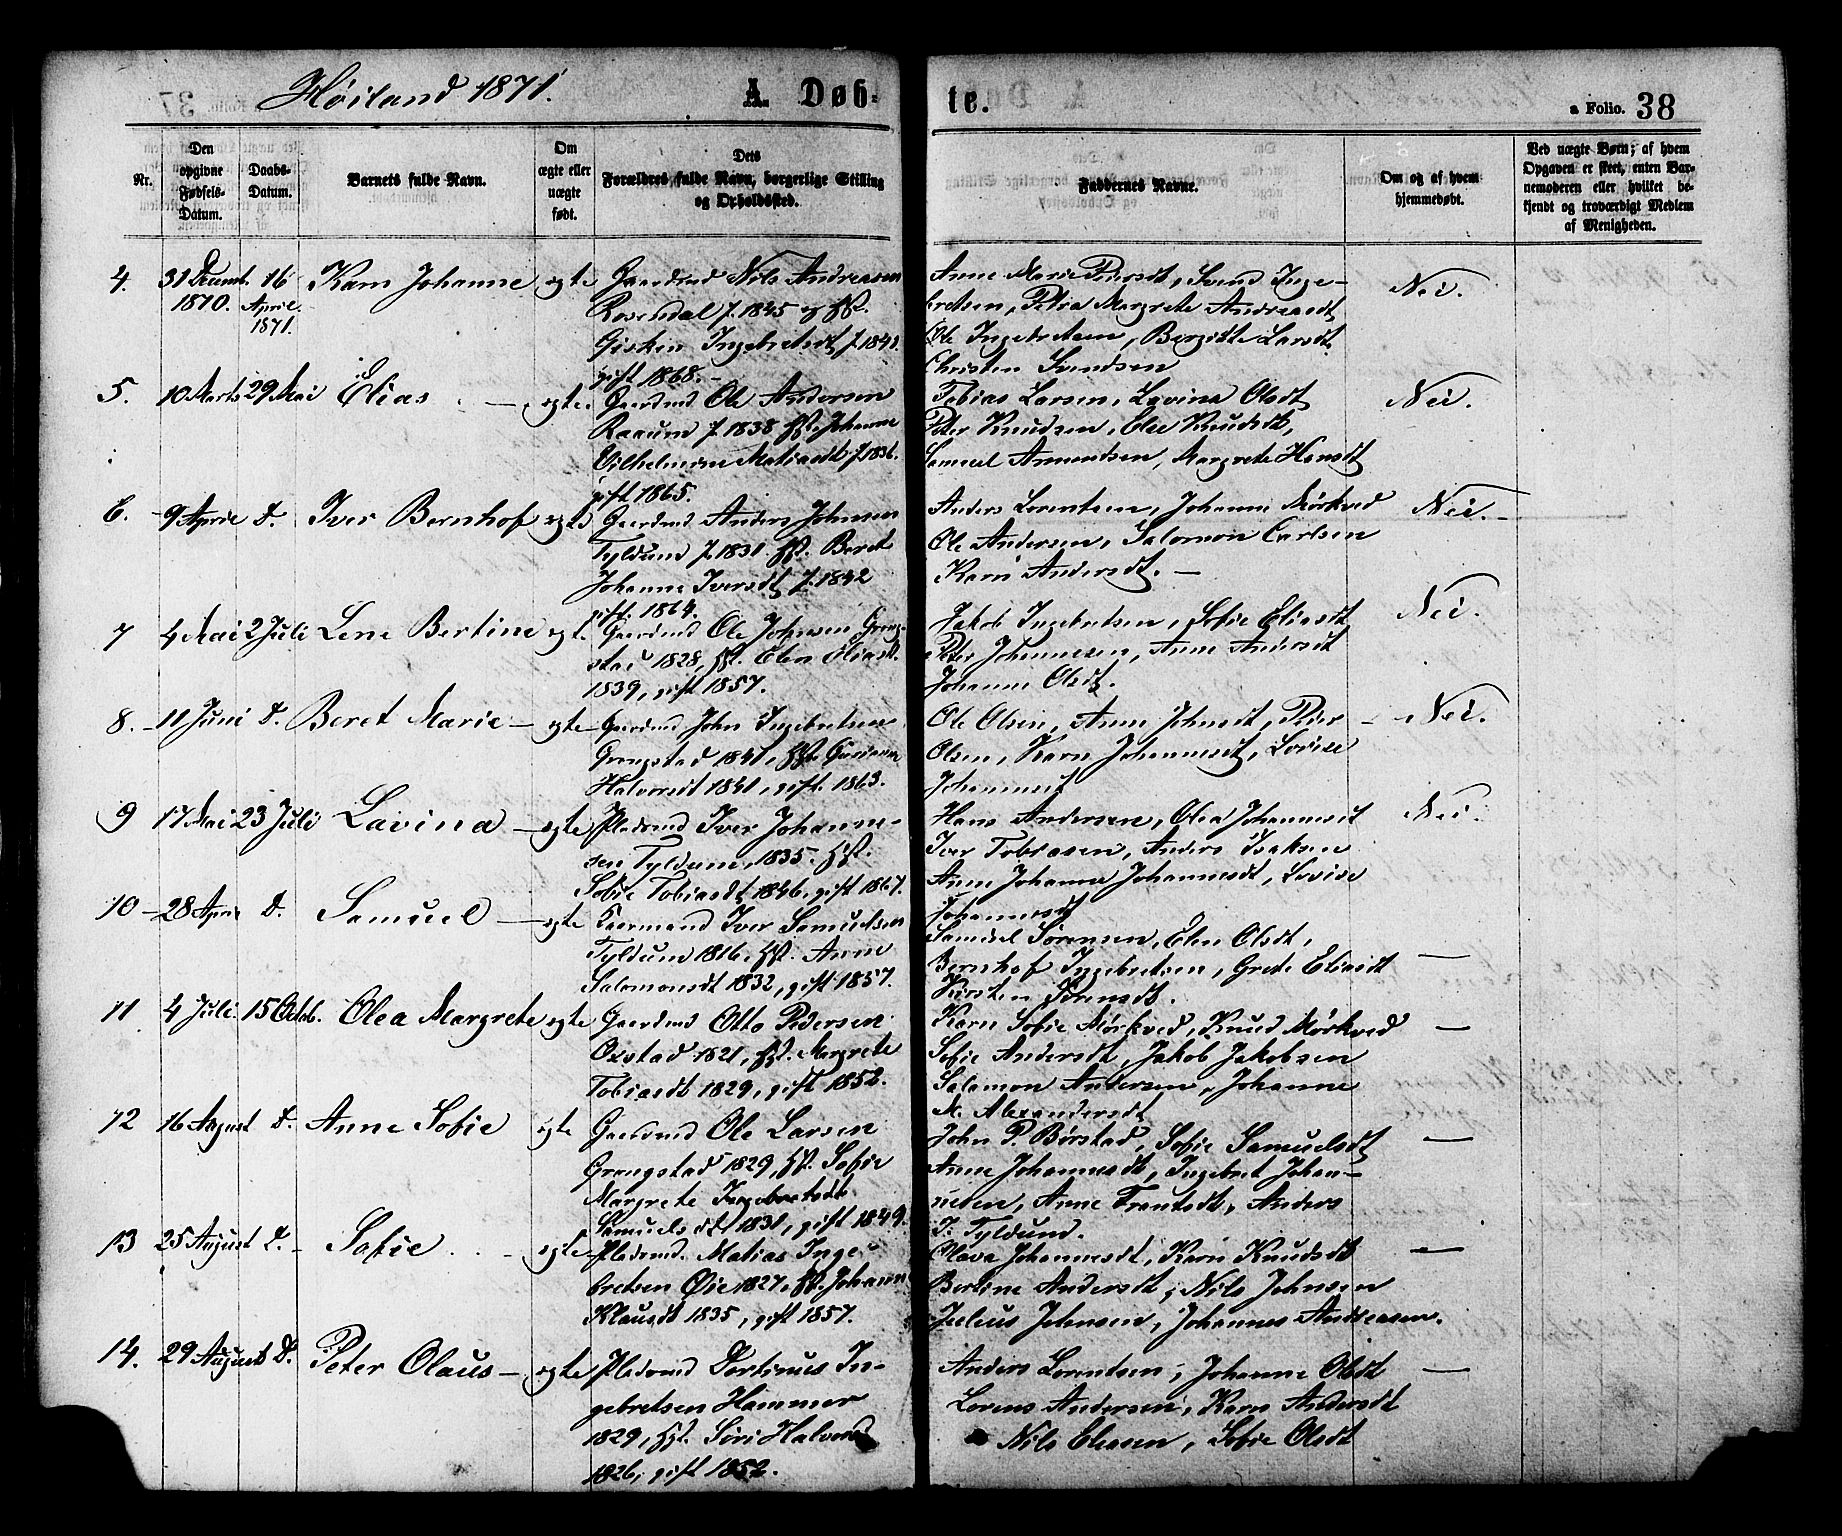 Høiland 1871. A. Døb-
te. a Folio. 38
Nr.
Den opgivne Fødsels-Datum.
Daabs-Datum.
Barnets fulde Navn.
Om ægte eller uægte født.
Dets Forældres fulde Navn, borgerlige Stilling og Opholdssted.
Faddernes Navne.
Om og af hvem hjemmedøbt.
Ved uægte Børn; af hvem Opgaven er skeet, enten Barnemoderen eller hvilket bekjendt og troværdigt Medlem af Menigheden.
4. 31 Decemb. 1870. 16 April 1871. Karn Johanne egte
Gaardmd Nils Andreasen
Rosendal f. 1845 og Hst.
Gisken Ingebretsdt f. 1841.
gift 1868. -
Anne Marie Pedersdt, Svend Inge-
bretsen, Petra Margrete Andreasdt
Ole Ingebretsen, Bergitte Larsdt
Christen Svendsen
Nei.
5. 10 Marts 29 Mai Elias - egte.
Gaardmd Ole Andersen
Raaum f. 1838 Hst. Johanne
Vilhelmine Matiasdt f. 1836.
gift 1865.
Tobias Larsen, Lavina Olsdt
Peter Knudsen, Else Knudsdt,
Samuel Amundsen, Margrete Hansdt
Nei.
6. 9 April D. Iver Bernhof egte
Gaardmd Anders Johnsen
Tyldum f. 1831. Hst. Beret
Johanne Iversdt f. 1842
gift. 1864.
Anders Lorentsen, Johanne Mørkved
Ole Andersen, Salomon Carlsen
Karn Andersdt. -
Nei.
7 4 Mai 2 Juli Lene Bertine egt.
Gaardmd Ole Johnsen Grong-
stad 1828, Hst. Elen Eliasdt
1839, gift 1857.
Jakob Ingebretsen, Sofie Eliasdt
Peter Johannesen, Anne Andersdt
Johanne Olsdt.
Nei.
8. 11 Juni D. Beret Marie - egte
Gaardmd John Ingebretsen
Grongstad 1841, Hst. Gurianna
Halvorsdt 1841, gift 1863.
Ole Olsen, Anne Johnsdt, Peder
Olsen, Karn Johannesdt, Lovise
Johannesdt
Nei.
9 17 Mai 23 Juli Lavina - egte
Pladsmd Iver Johanne-
sen Tyldum, 1835. Hst.
Sofie Tobiasdt 1846, gift 1867.
Hans Andersen, Olea Johannesdt
Iver Tobiasen, Anders Isaksen
Anne Johanna Johannesdt, Lovise
Johannesdt
Nei.
10 28 April D. Samuel - egte
Kaarmand Iver Samuelsen
Tyldum 1816, Hst. Anne
Salomonsdt 1832, gift 1857.
Samuel Sørensen, Elen Olsdt,
Bernhof Ingebretsen, Grete Eliasdt
Kirsten Sørensdt.
-
11 4 Juli 15 Octob. Olea Margrete egte
Gaardmd Otto Pedersen
Oxstad 1821, Hst. Margrete
Tobiasdt 1829, gift 1852.
Karn Sofie Mørkved, Knud Mørkved
Sofie Andersdt, Jakob Jakobsen
Salamon Andersen, Johanne
M. Alexandersdt
-
12 16 August D. Anne Sofie egte
Gaardmd Ole Larsen
Grongstad 1829, Hst. Sofie
Margrete Ingebretsdt
Samuelsdt 1831, gift 1849.
John P. Børstad, Sofie Samuelsdt
Anne Johannesdt, Ingebret Johan-
nesen, Anne Frantsdt, Anders
J. Tyldum.
-
13 25 August D. Sofie - egte
Pladsmd. Matias Inge-
bretsen Øie 1827, Hst. Johann
Klausdt 1835, gift 1857.
Olava Johannesdt, Karn Knudsdt
Bertine Andersdt, Nils Johnsen
Julius Johnsen, Johannes Andreasen.
-
14. 29 August D. Peter Olaus - egte
Pladsmd Mortinus In-
gebretsen Hammer
1829, Hst. Siri Halvorsd
1826, gift 1852.
Anders Lorentsen, Johanne Olsdt
Lorens Andersen, Karn Andersdt
Nils Eliasen, Sofie Olsdt
-